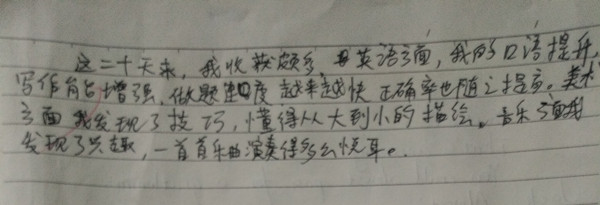 这二十天来,我收获颇多,英语方面,我的口语提升,
写作能力增强,做题速度越来越快 正确率也随之提高。美术
方面 我发现了技巧,懂得从大到小的描绘。音乐方面我
发现了兴趣,一首首乐曲演奏得多么悦耳。